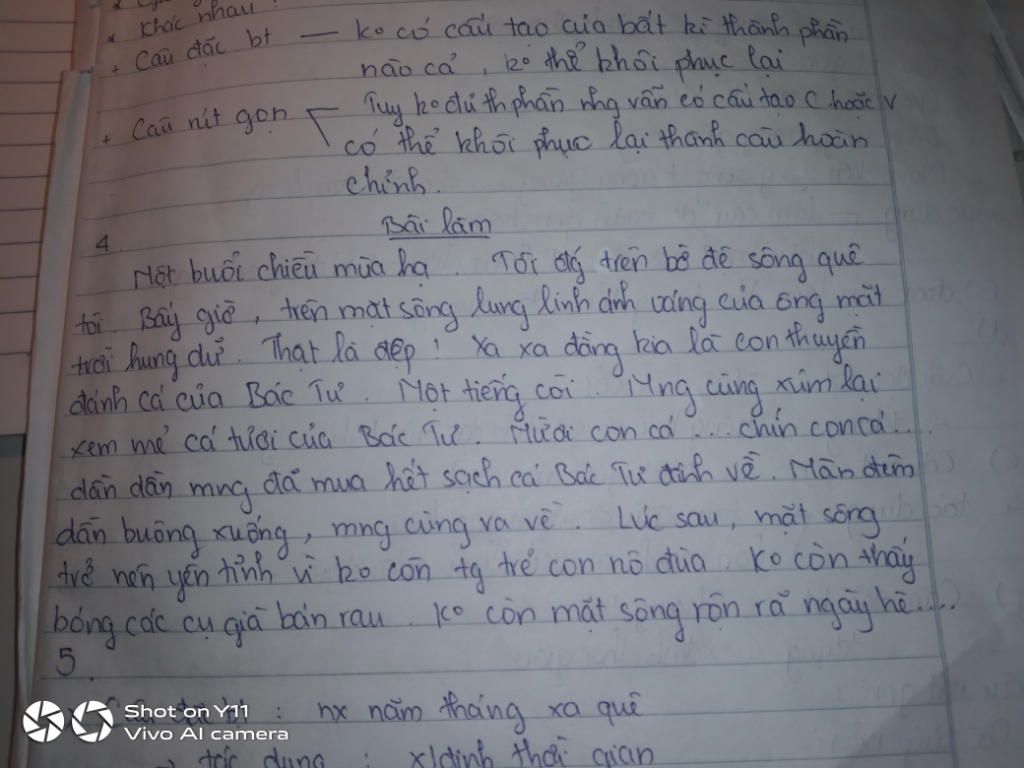 * khác nhau :
+ Câu đặc bt — ko có cấu tạo của bất kì thành phần
nào cả, ko thể khôi phục lại
+ Câu rút gọn < Tuy ko đủ th phần nhg vẫn có cấu tạo C hoặc V
có thể khôi phục lại thành câu hoàn
chỉnh.
4. Bài làm
Một buổi chiều mùa hạ. Tôi đg trên bờ đê sông quê
tôi. Bấy giờ, trên mặt sông lung linh ánh vàng của ông mặt
trời hung dữ. Thật là đẹp! Xa xa đằng kia là con thuyền
đánh cá của Bác Tư. Một tiếng còi. Mng cùng xúm lại
xem mẻ cá tươi của Bác Tư. Mười con cá... chín con cá....
dần dần mng đã mua hết sạch cá Bác Tư đánh về. Màn đêm
dần buông xuống, mng cùng ra về. Lúc sau, mặt sông
trở nên yên tĩnh vì ko còn tg trẻ con nô đùa. Ko còn thấy
bóng các cụ già bán rau. Ko còn mặt sông rộn rã ngày hè....
5.
: nx năm tháng xa quê
→ tác dụng : x/định thời gian
Shot on Y11
Vivo AI camera